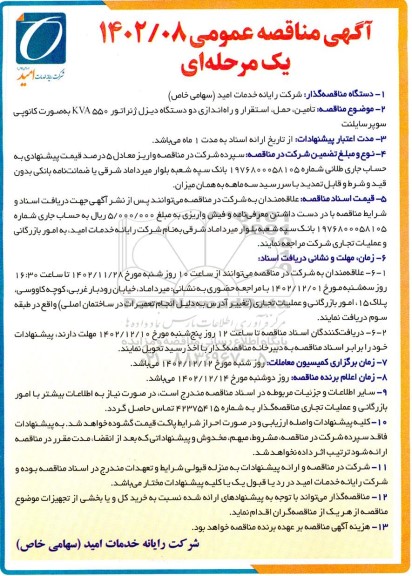 آگهی مناقصه عمومی ۱۴۰۲/۰۸
یک مرحله‌ای
شرکت رایانه خدمات امید
۱- دستگاه مناقصه‌گذار: شرکت رایانه خدمات امید (سهامی خاص)
۲- موضوع مناقصه: تامین، حمل، استقرار و راه‌اندازی دو دستگاه دیزل ژنراتور ۵۵۰ KVA به‌صورت کانوپی
سوپر سایلنت
۳- مدت اعتبار پیشنهادات: از تاریخ ارائه اسناد به مدت ۱ ماه می‌باشد.
۴- نوع و مبلغ تضمین شرکت در مناقصه: سپرده شرکت در مناقصه واریز معادل ۵ درصد قیمت پیشنهادی به
حساب جاری طلائی شماره ۱۹۷۶۸۰۰۰۵۸۱۰۵ بانک سپه شعبه بلوار میرداماد شرقی یا ضمانت‌نامه بانکی بدون
قید و شرط و قابل تمدید با سررسید سه ماهه به همان میزان.
۵- قیمت اسناد مناقصه: علاقه‌مندان به شرکت در مناقصه می‌توانند پس از نشر آگهی جهت دریافت اسناد و
شرایط مناقصه با در دست داشتن معرفی‌نامه و فیش واریزی به مبلغ ۵/۰۰۰/۰۰۰ ریال به حساب جاری شماره
۱۹۷۶۸۰۰۰۵۸۱۰۵ بانک سپه شعبه بلوار میرداماد شرقی به‌نام شرکت رایانه خدمات امید، به امور بازرگانی
و عملیات تجاری شرکت مراجعه نمایند.
۶- زمان، مهلت و نشانی دریافت اسناد:
۶-۱- علاقه‌مندان به شرکت در مناقصه می‌توانند از ساعت ۱۰ روز شنبه مورخ ۱۴۰۲/۱۱/۲۸ تا ساعت ۱۶:۳۰
روز سه‌شنبه مورخ ۱۴۰۲/۱۲/۰۱ با مراجعه حضوری به نشانی: میرداماد، خیابان رودبار غربی، کوچه کاووسی،
پلاک ۱۵، امور بازرگانی و عملیات تجاری (تغییر آدرس به دلیل انجام تعمیرات در ساختمان اصلی) واقع در طبقه
سوم دریافت نمایند.
۶-۲- دریافت‌کنندگان اسناد مناقصه تا ساعت ۱۲ روز پنج‌شنبه مورخ ۱۴۰۲/۱۲/۱۰ مهلت دارند، پیشنهادات
خود را برابر اسناد مناقصه به دبیرخانه مناقصه‌گذار با اخذ رسید تحویل نمایند.
۷- زمان برگزاری کمیسیون معاملات: روز شنبه مورخ ۱۴۰۲/۱۲/۱۲ می‌باشد.
۸- زمان اعلام برنده مناقصه: روز دوشنبه مورخ ۱۴۰۲/۱۲/۱۴ می‌باشد.
۹- سایر اطلاعات و جزئیات مربوطه در اسناد مناقصه مندرج است، در صورت نیاز به اطلاعات بیشتر با امور
بازرگانی و عملیات تجاری مناقصه‌گذار به شماره ۴۲۳۷۵۴۱۵ تماس حاصل گردد.
۱۰- کلیه پیشنهادات واصله ارزیابی و در صورت احراز شرایط پاکت قیمت گشوده خواهد شد. به پیشنهادات
فاقد سپرده شرکت در مناقصه، مشروط، مبهم، مخدوش و پیشنهاداتی که بعد از انقضا، مدت مقرر در مناقصه
ارائه شود ترتیب اثر داده نخواهد شد.
۱۱- شرکت در مناقصه و ارائه پیشنهادات به منزله قبولی شرایط و تعهدات مندرج در اسناد مناقصه بوده و
شرکت رایانه خدمات امید در رد یا قبول یک یا کلیه پیشنهادات مختار می‌باشد.
۱۲- مناقصه‌گذار می‌تواند با توجه به پیشنهادهای ارائه شده نسبت به خرید کل و یا بخشی از تجهیزات موضوع
مناقصه از هر یک از مناقصه‌گران اقدام نماید.
۱۳- هزینه آگهی مناقصه بر عهده برنده مناقصه خواهد بود.
شرکت رایانه خدمات امید (سهامی خاص)